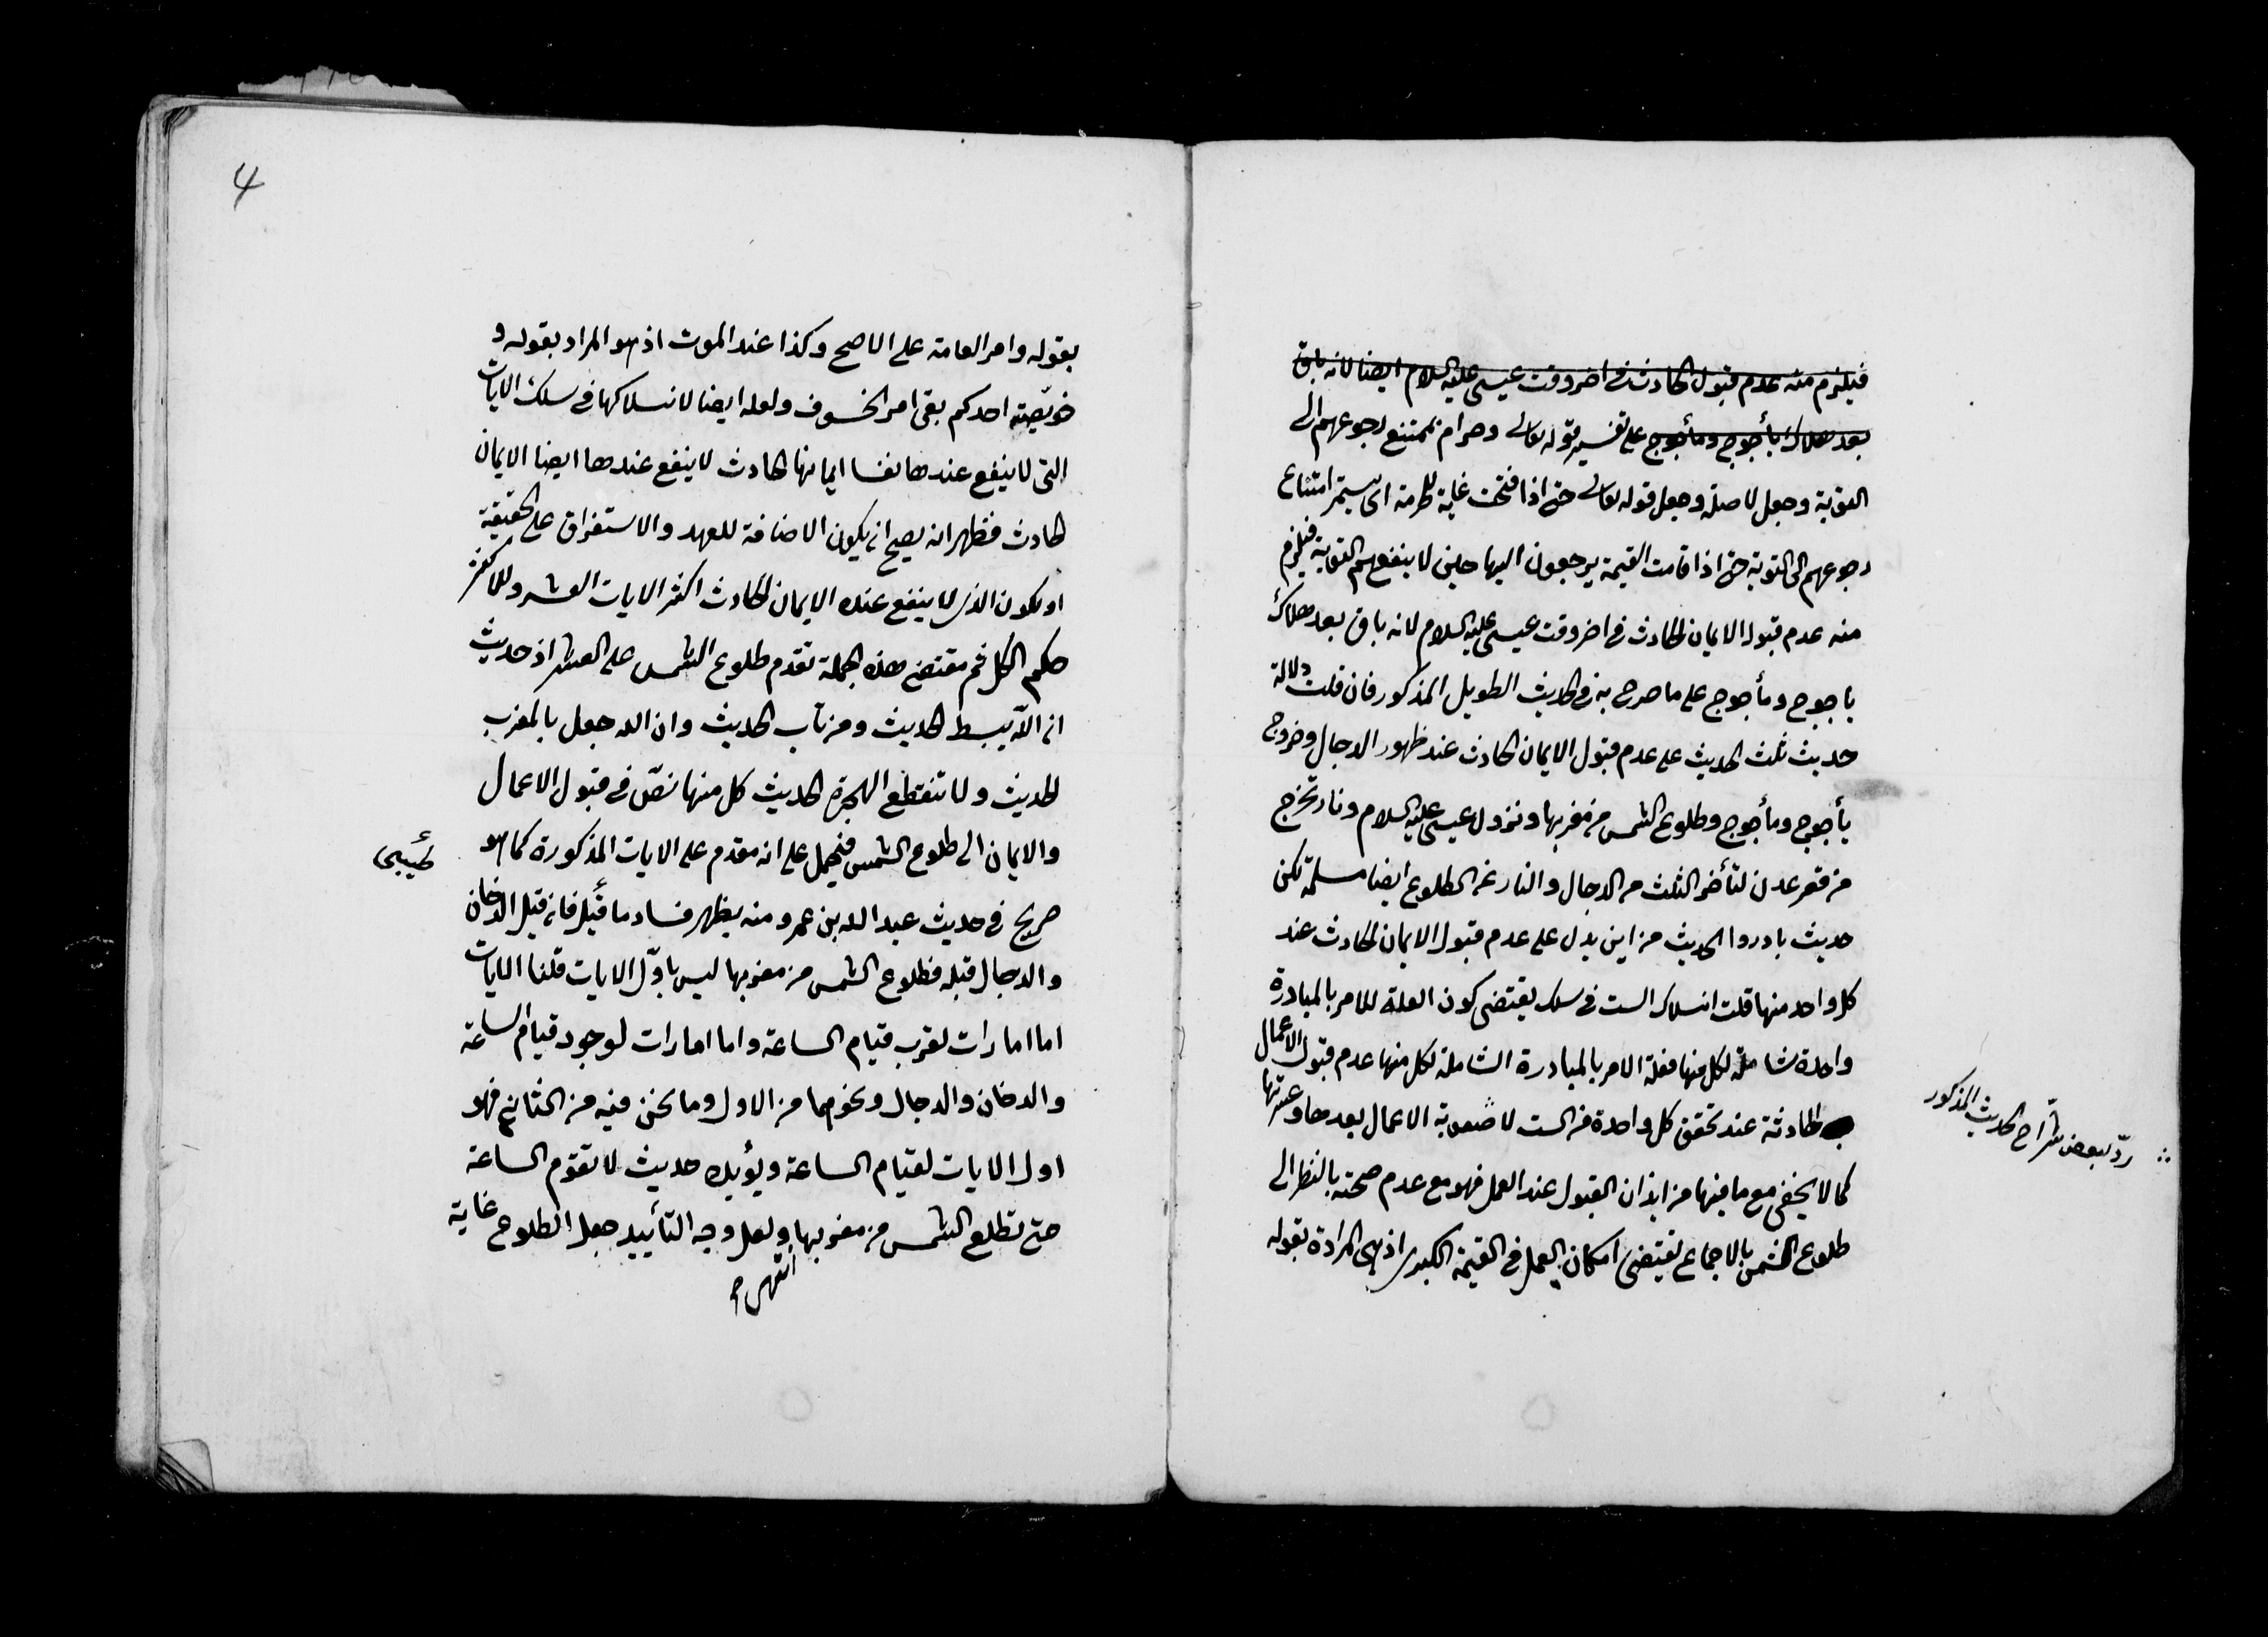 فيلزم منه عدم قبول الحادث في اخر وقت عيسى عليه السلام ايضا لانه باق
بعد هلاك يأجوج ومأجوج على تفسير قوله تعالى وحرام بممتنع رجوعهم الى
التوبة وجعل لا صلة وجعل قوله تعالى حتى اذا فتحت غاية للحرمة اى يستمر امتناع
رجوعهم الى التوبة حتى اذا قامت القيمة يرجعون اليها حين لا ينفعهم التوبة فيلزم
منه عدم قبول الايمان الحادث في اخر وقت عيسى عليه السلام لانه باق بعد هلاك
ياجوج ومأجوج على ما صرح به في الحديث الطويل المذكور فان قلت دلالة
حديث ثلث الحديث على عدم قبول الايمان الحادث عند ظهور الدجال وخروج
يأجوج ومأجوج وطلوع الشمس من مغربها ونزول عيسى عليه السلام ونار تخرج
من قعر عدن لتأخر الثلث من الدجال والنار عن الطلوع ايضا مسلمة لكن
حديث بادروا الحديث من اين يدل على عدم قبول الايمان الحادث عند
كل واحد منها قلت انسلاك الست في سلك يقتضى كون العلة للامر بالمبادرة
واحدة شاملة لكل منها فعلة الامر بالمبادرة الشاملة لكل منها عدم قبول الاعمال
الحادثة عند تحقق كل واحدة من الست لا صعوبة الاعمال بعدها وعسرتها
كما لا يخفى مع ما فيها من ايذان القبول عند العمل فهو مع عدم صحته بالنظر الى
طلوع الشمس بالاجماع يقتضى امكان العمل في القيمة الكبرى اذ هى المرادة بقوله
ردّ لبعض شرّاح الحديث المذكور
4
بقوله وامر العامة على الاصح وكذا عند الموت اذ هو المراد بقوله و
خويّصة احدكم بقى امر الخسوف ولعله ايضا لانسلاكها في سلك الايات
التى لا ينفع عندها نفسا ايمانها الحادث لا ينفع عندها ايضا الايمان
الحادث فظهر انه يصح ان يكون الاضافة للعهد والاستغراق على الحقيقة
او يكون الذى لا ينفع عنده الايمان الحادث اكثر الايات العشر وللاكثر
حكم الكل ثم مقتضى هذه الجملة تقدم طلوع الشمس على العشر اذ حديث
ان الله يبسط الحديث ومن تاب الحديث وان الله جعل بالمغرب
الحديث ولا تنقطع الهجرة الحديث كل منها نصّ في قبول الاعمال
والايمان الى طلوع الشمس فيحمل على انه مقدم على الايات المذكورة كما هو
صريح في حديث عبد الله بن عمرو منه يظهر فساد ما قيل فان قيل الدخان
والدجال قبله فطلوع الشمس من مغربها ليس باوّل الايات قلنا الايات
اما امارات لقرب قيام الساعة واما امارات لوجود قيام الساعة
والدخان والدجال ونحوهما من الاول وما نحن فيه من الثانى فهو
اول الايات لقيام الساعة ويؤيده حديث لا تقوم الساعة
حتى تطلع الشمس من مغربها ولعل وجه التأييد جعل الطلوع غاية
طيبى
انتهى